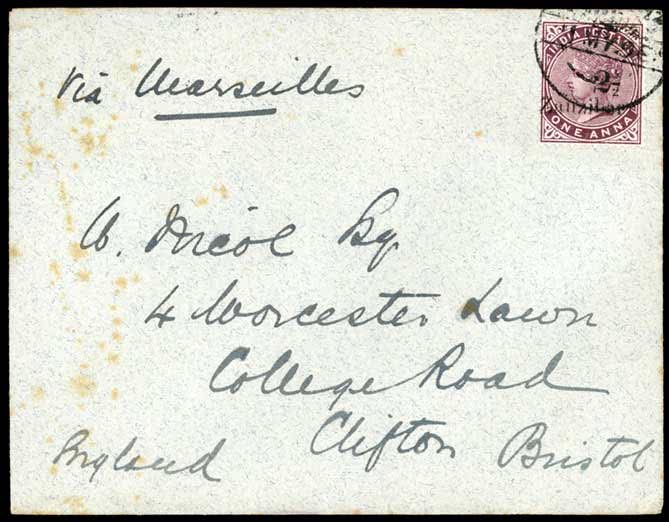 INDIA POSTAGE
ONE ANNA
Via Marseilles
W. Nicol Esq.
4 Worcester Lawn
College Road
Clifton Bristol
England